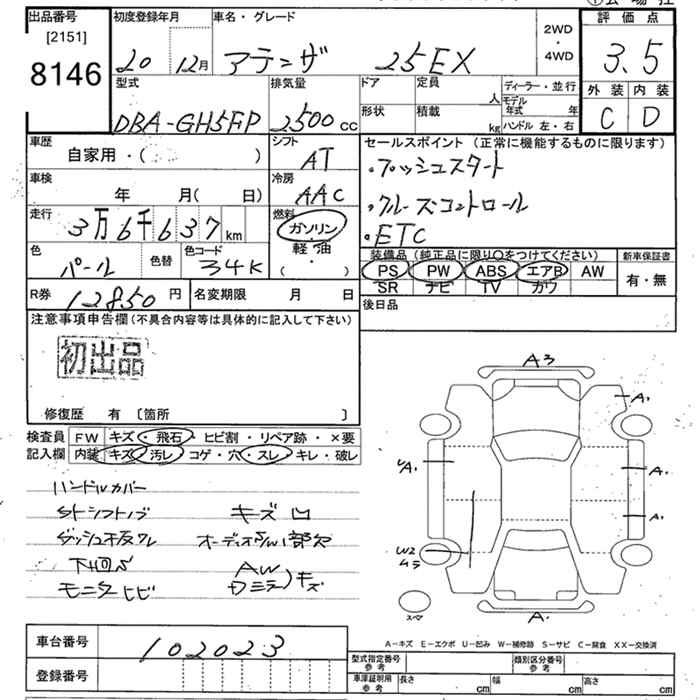 出品番号
[2151]
8146
初度登録年月
20 12月
車名・グレード
アテンザ 25EX
2WD
・
4WD
評価点
3.5
外装 内装
C D
型式
DBA-GH5FP
排気量
2500 cc
ドア
形状
定員
人
積載
kg
ディーラー・並行
モデル
年式 年
ハンドル 左・右
車歴
自家用・( )
シフト
AT
車検
年 月( 日)
冷房
AAC
走行
3万6千637 km
燃料
ガソリン
軽・油
・( )
色
パール
色替
色コード
34K
R券 12850 円
名変期限 月 日
セールスポイント (正常に機能するものに限ります)
・プッシュスタート
・クルーズコントロール
・ETC
装備品 (純正品に限り○をつけてください)
PS PW ABS エアB AW
SR ナビ TV カワ
新車保証書
有・無
後日品
注意事項申告欄 (不具合内容等は具体的に記入して下さい)
初出品
修復歴 有 〔箇所 〕
検査員
記入欄
FW キズ・飛石・ヒビ割・リペア跡・×要
内装 キズ・汚レ・コゲ・穴・スレ・キレ・破レ
ハンドルカバー
シフトノブ キズ凹
ダッシュ板ワレ
下回S AW
モニタヒビ Dミラー キズ
A3
A1
UA1
A1
A1
W2
A1
スペア
A-キズ E-エクボ U-凹み W-補修跡 S-サビ C-腐食 XX-交換済
車台番号 102023
登録番号
型式指定番号
参考
類別区分番号
参考
車庫証明用
参考
長さ cm 幅 cm 高さ cm